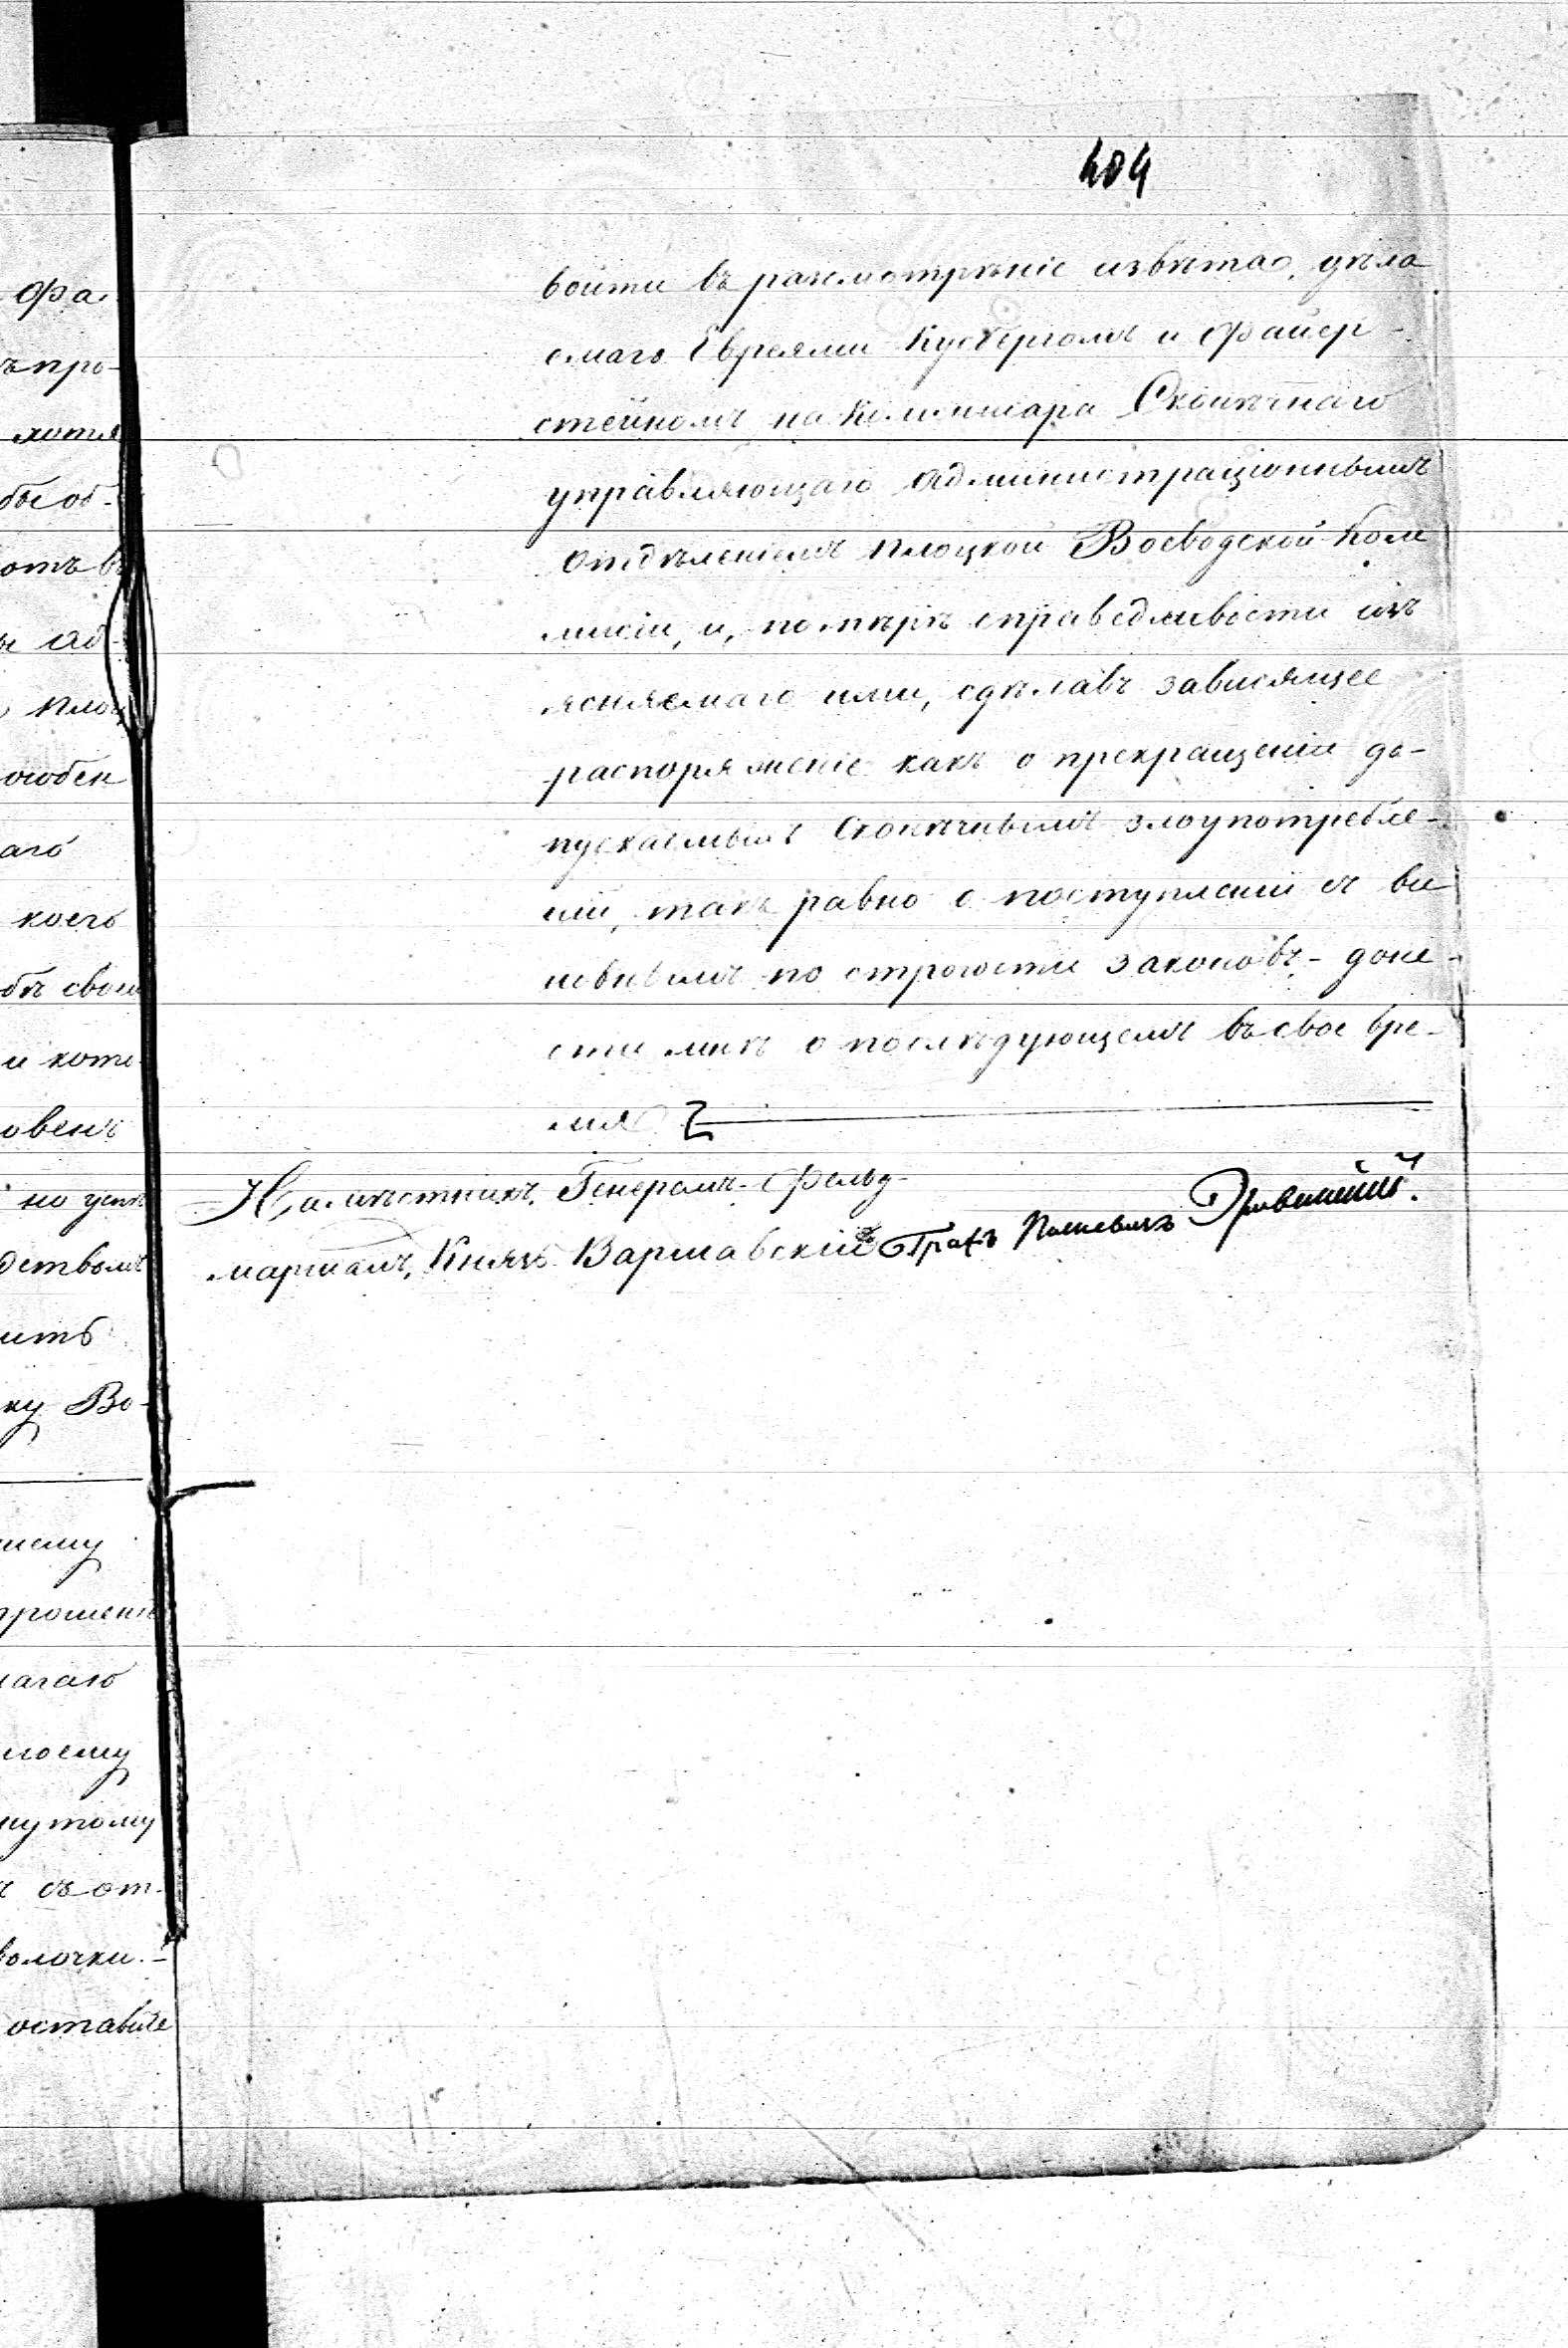 404
войти въ разсмотрѣніе извѣтао, дѣла
емаго Евреями Кусбергомъ и Файер-
стейномъ на Коммисара Скошѣчнаго
управляющаго Администраціоннымъ
Отдѣленіемъ Плоцкой Воеводской Ком
мисіи, и, по мѣрѣ справедливости изъ
ясняемаго ими, сдѣлавъ зависящее
распоряженіе какъ о прекращеніи до-
пускаемыхъ злоупотребле-
ній, такъ равно о поступленіи съ ви
новнымъ по строгости законовъ, - доне-
сти мнѣ о послѣдующемъ въ свое вре-
мя
Намѣстникъ, Генералъ-Фельд-
маршалъ, Князь Варшавскій Графъ Паскевичъ Эриванскій.
Фа
ъ про-
хотя
бы об-
отъ въ
Ад-
Плоц
особен
аго
коего
объ свои
и кото
овенъ
но усп
дствомъ
ить
ку Во-
шему
прошені
лагаю
моему
нутому
съ от-
волочки.-
оставите